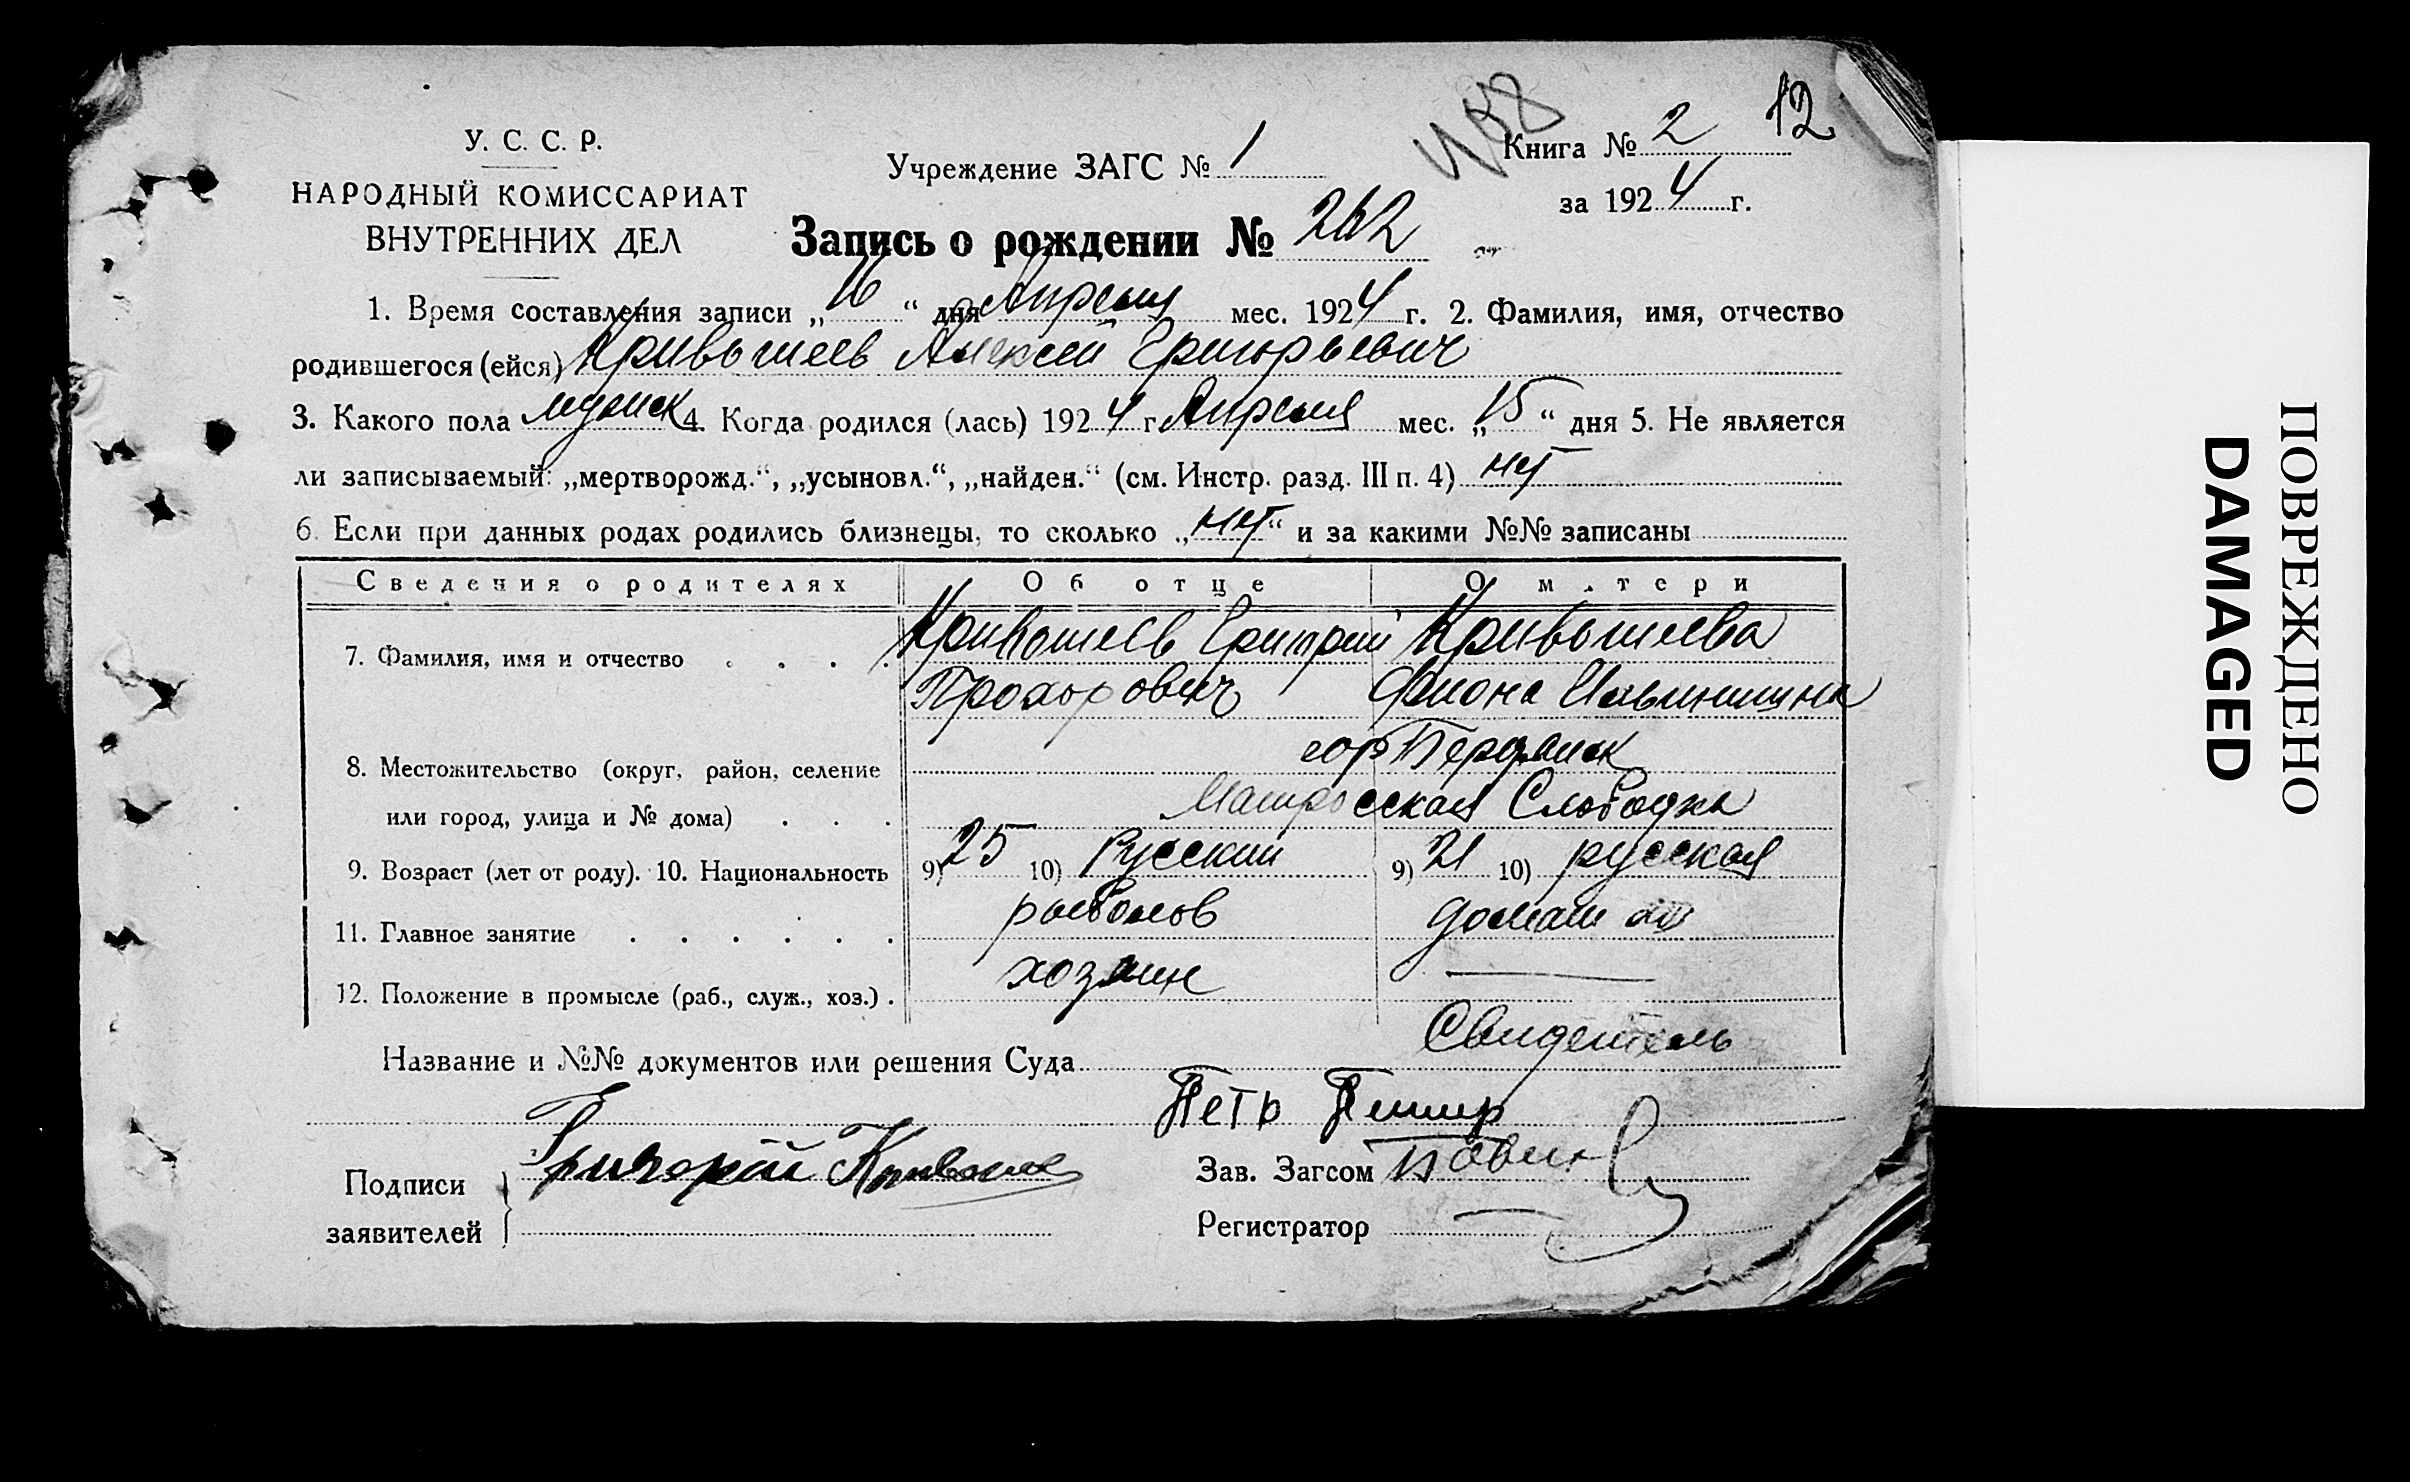 12
У. С. С. Р.
НАРОДНЫЙ КОМИССАРИАТ
ВНУТРЕННИХ ДЕЛ
Учреждение ЗАГС № 1
Книга № 2
за 1924 г.
Запись о рождении № 262
1. Время составления записи „16“ дня Апреля мес. 1924 г. 2. Фамилия, имя, отчество
родившегося (ейся) Кривошеев Алексей Григорьевич
3. Какого пола мужск 4. Когда родился (лась) 1924 г. Апреля мес. „15“ дня 5. Не является
ли записываемый: „мертворожд.“, „усыновл.“, „найден.“ (см. Инстр. разд. III п. 4) нет
6. Если при данных родах родились близнецы, то сколько „нет“ и за какими №№ записаны
Сведения о родителях Об отце О матери
7. Фамилия, имя и отчество Кривошеев Григорий Кривошеева
Прохорович Фиона
гор Бердянск
8. Местожительство (округ, район, селение
или город, улица и № дома) Матросская Слободка
9. Возраст (лет от роду). 10. Национальность 9) 25 10) Русский 9) 21 10) русская
11. Главное занятие рыболов домаш хоз
12. Положение в промысле (раб., служ., хоз.) хозяин
Свидетель
Название и №№ документов или решения Суда
Петр
Подписи Григорий Кривошее Зав. Загсом
заявителей Регистратор
ПОВРЕЖДЕНО
DAMAGED